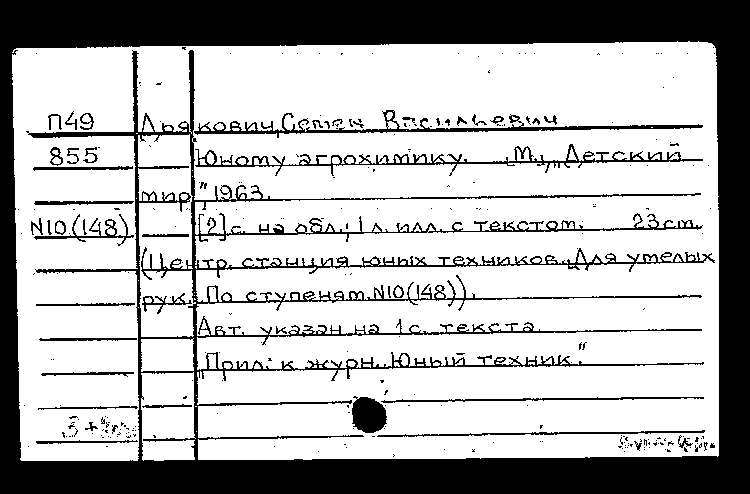 П49 Дьякович, Семен Васильевич
855 Юному агрохимику. М., „Детский
мир", 1963.
N10(148) [2] с. на обл.; 1 л. илл. с текстом. 23 см.
(Центр. станция юных техников. „Для умелых
рук. По ступеням. N10(148)).
Авт. указан на 1 с. текста.
„Прил. к журн. „Юный техник".
3 +